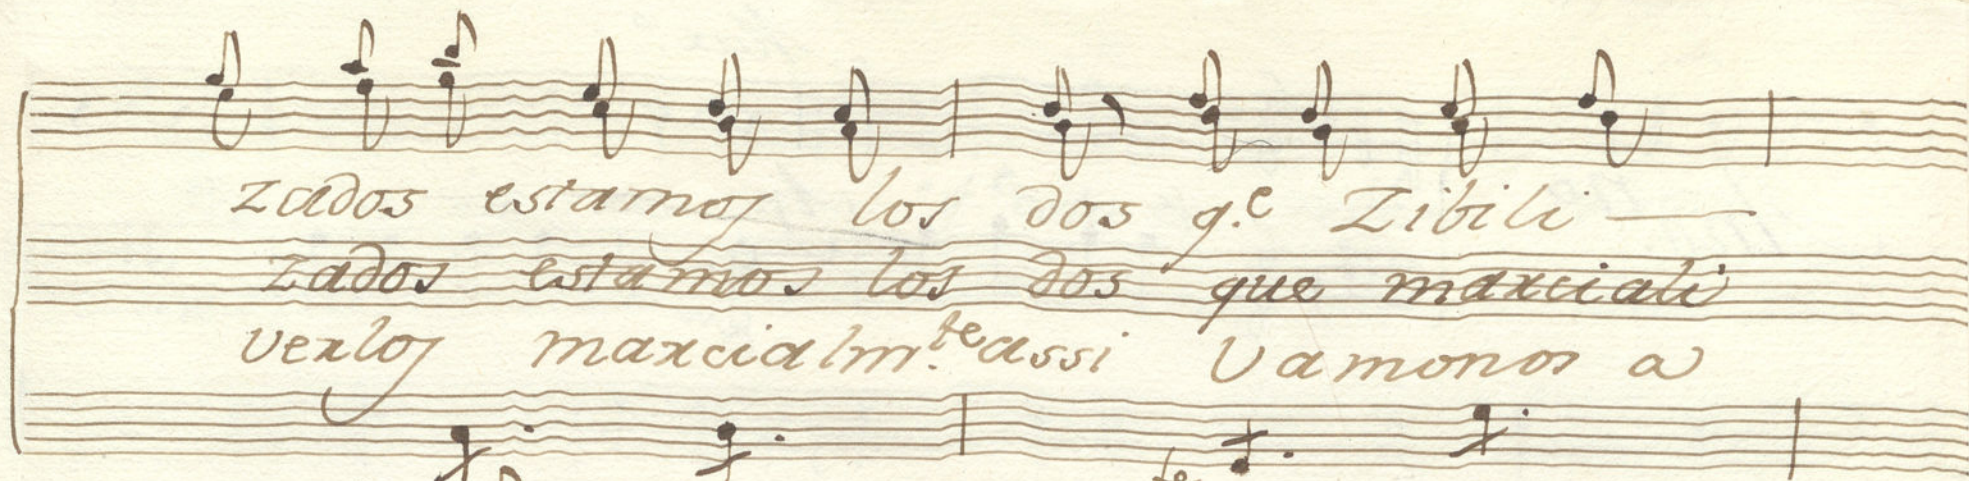 zados estamos los dos q.e Zibili —
zados estamos los dos que marciali
verlos marcialm.te assi Vamonos a
te